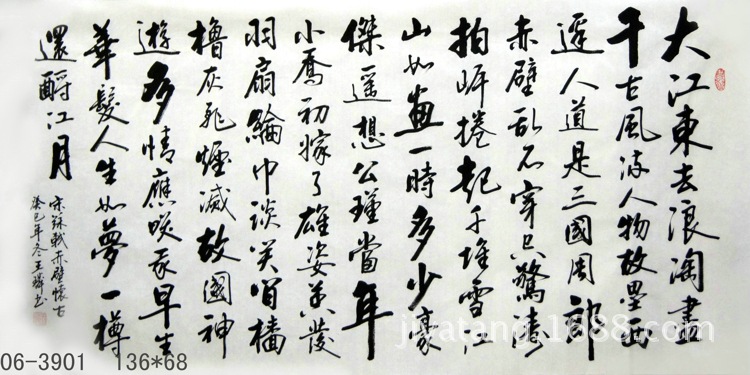 大江東去浪淘盡
千古風流人物故壘西
邊人道是三國周郎
赤壁乱石穿空驚濤
拍岸捲起千堆雪江
山如畫一時多少豪
傑遥想公瑾當年
小喬初嫁了雄姿英發
羽扇綸巾談笑間檣
櫓灰飛煙滅故國神
遊多情應笑我早生
華髮人生如夢一樽
還酹江月
宋蘇軾赤壁懷古
癸巳年冬王書
jinatang.1688.com
06-3901 136*68